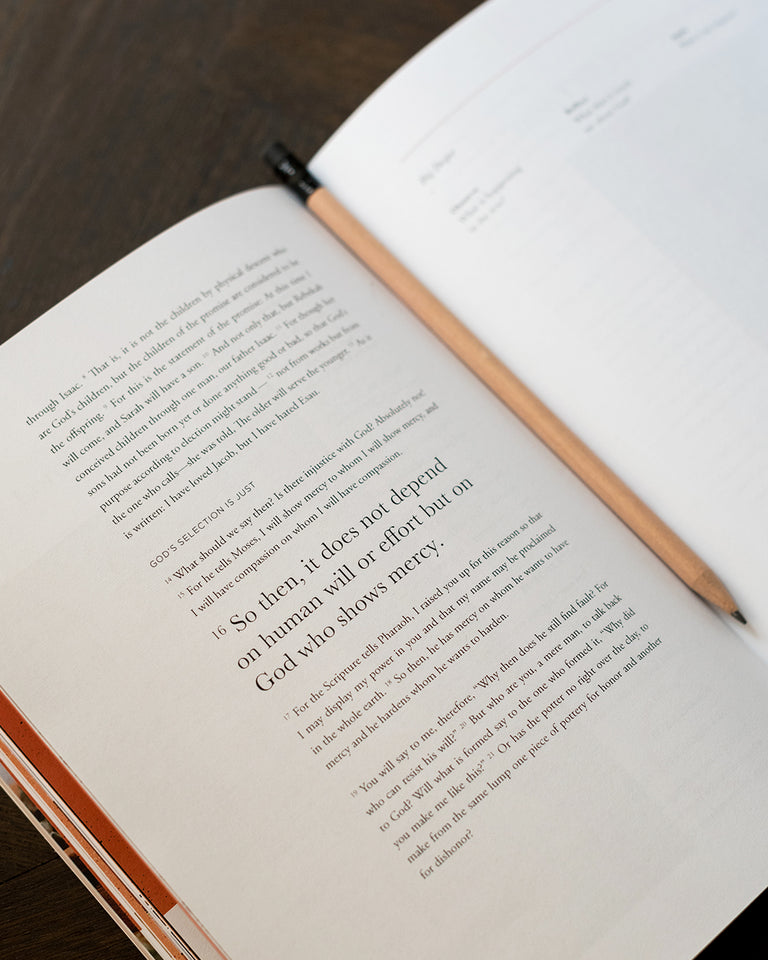 through Isaac. 8 That is, it is not the children by physical descent who
are God's children, but the children of the promise are considered to be
the offspring. 9 For this is the statement of the promise: At this time I
will come, and Sarah will have a son. 10 And not only that, but Rebekah
conceived children through one man, our father Isaac. 11 For though her
sons had not been born yet or done anything good or bad, so that God's
purpose according to election might stand— 12 not from works but from
the one who calls—she was told, The older will serve the younger. 13 As it
is written: I have loved Jacob, but I have hated Esau.
GOD'S SELECTION IS JUST
14 What should we say then? Is there injustice with God? Absolutely not!
15 For he tells Moses, I will show mercy to whom I will show mercy, and
I will have compassion on whom I will have compassion.
16 So then, it does not depend
on human will or effort but on
God who shows mercy.
17 For the Scripture tells Pharaoh, I raised you up for this reason so that
I may display my power in you and that my name may be proclaimed
in the whole earth. 18 So then, he has mercy on whom he wants to have
mercy and he hardens whom he wants to harden.
19 You will say to me, therefore, "Why then does he still find fault? For
who can resist his will?" 20 But who are you, a mere man, to talk back
to God? Will what is formed say to the one who formed it, "Why did
you make me like this?" 21 Or has the potter no right over the clay, to
make from the same lump one piece of pottery for honor and another
for dishonor?